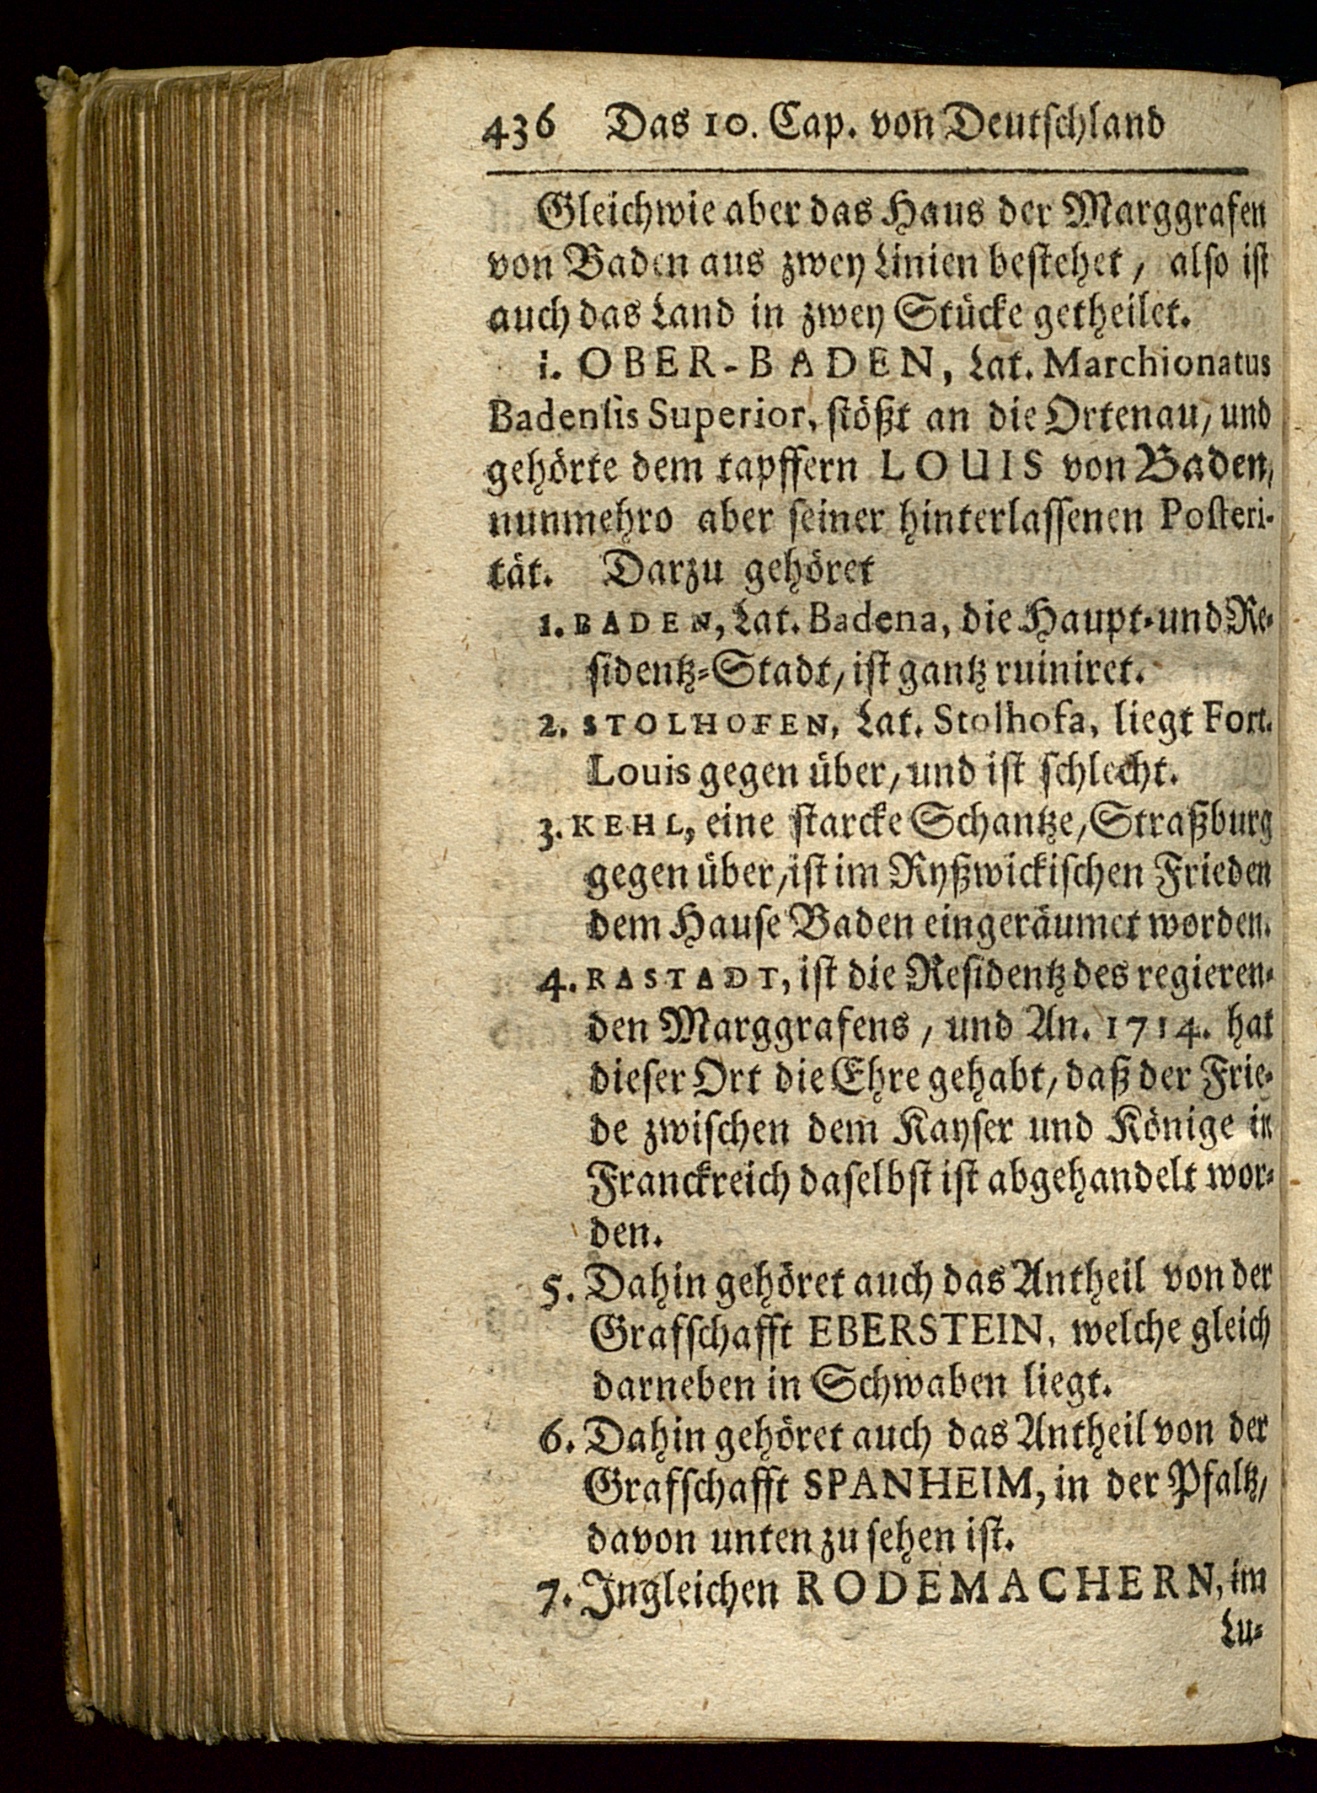 436 Das 10. Cap. von Deutschland
Gleichwie aber das Haus der Marggrafen
von Baden aus zwey Linien bestehet, also ist
auch das Land in zwey Stücke getheilet.
i. OBER-BADEN, Lat. Marchionatus
Badensis Superior, stößt an die Ortenau, und
gehörte dem tapffern LOUIS von Baden,
nunmehro aber seiner hinterlassenen Posteri-
tät. Darzu gehöret
1. BADEN, Lat. Badena, die Haupt-und Re-
sidentz-Stadt, ist gantz ruiniret.
2. STOLHOFEN, Lat. Stolhofa, liegt Fort.
Louis gegen über, und ist schlecht.
3. KEHL, eine starcke Schantze, Straßburg
gegen über, ist im Ryßwickischen Frieden
dem Hause Baden eingeräumet worden.
4. RASTADT, ist die Residentz des regieren-
den Marggrafens, und An. 1714. hat
dieser Ort die Ehre gehabt, daß der Frie-
de zwischen dem Kayser und Könige in
Franckreich daselbst ist abgehandelt wor-
den.
5. Dahin gehöret auch das Antheil von der
Grafschafft EBERSTEIN, welche gleich
darneben in Schwaben liegt.
6. Dahin gehöret auch das Antheil von der
Grafschafft SPANHEIM, in der Pfaltz,
davon unten zu sehen ist.
7. Ingleichen RODEMACHERN, im
Lu-